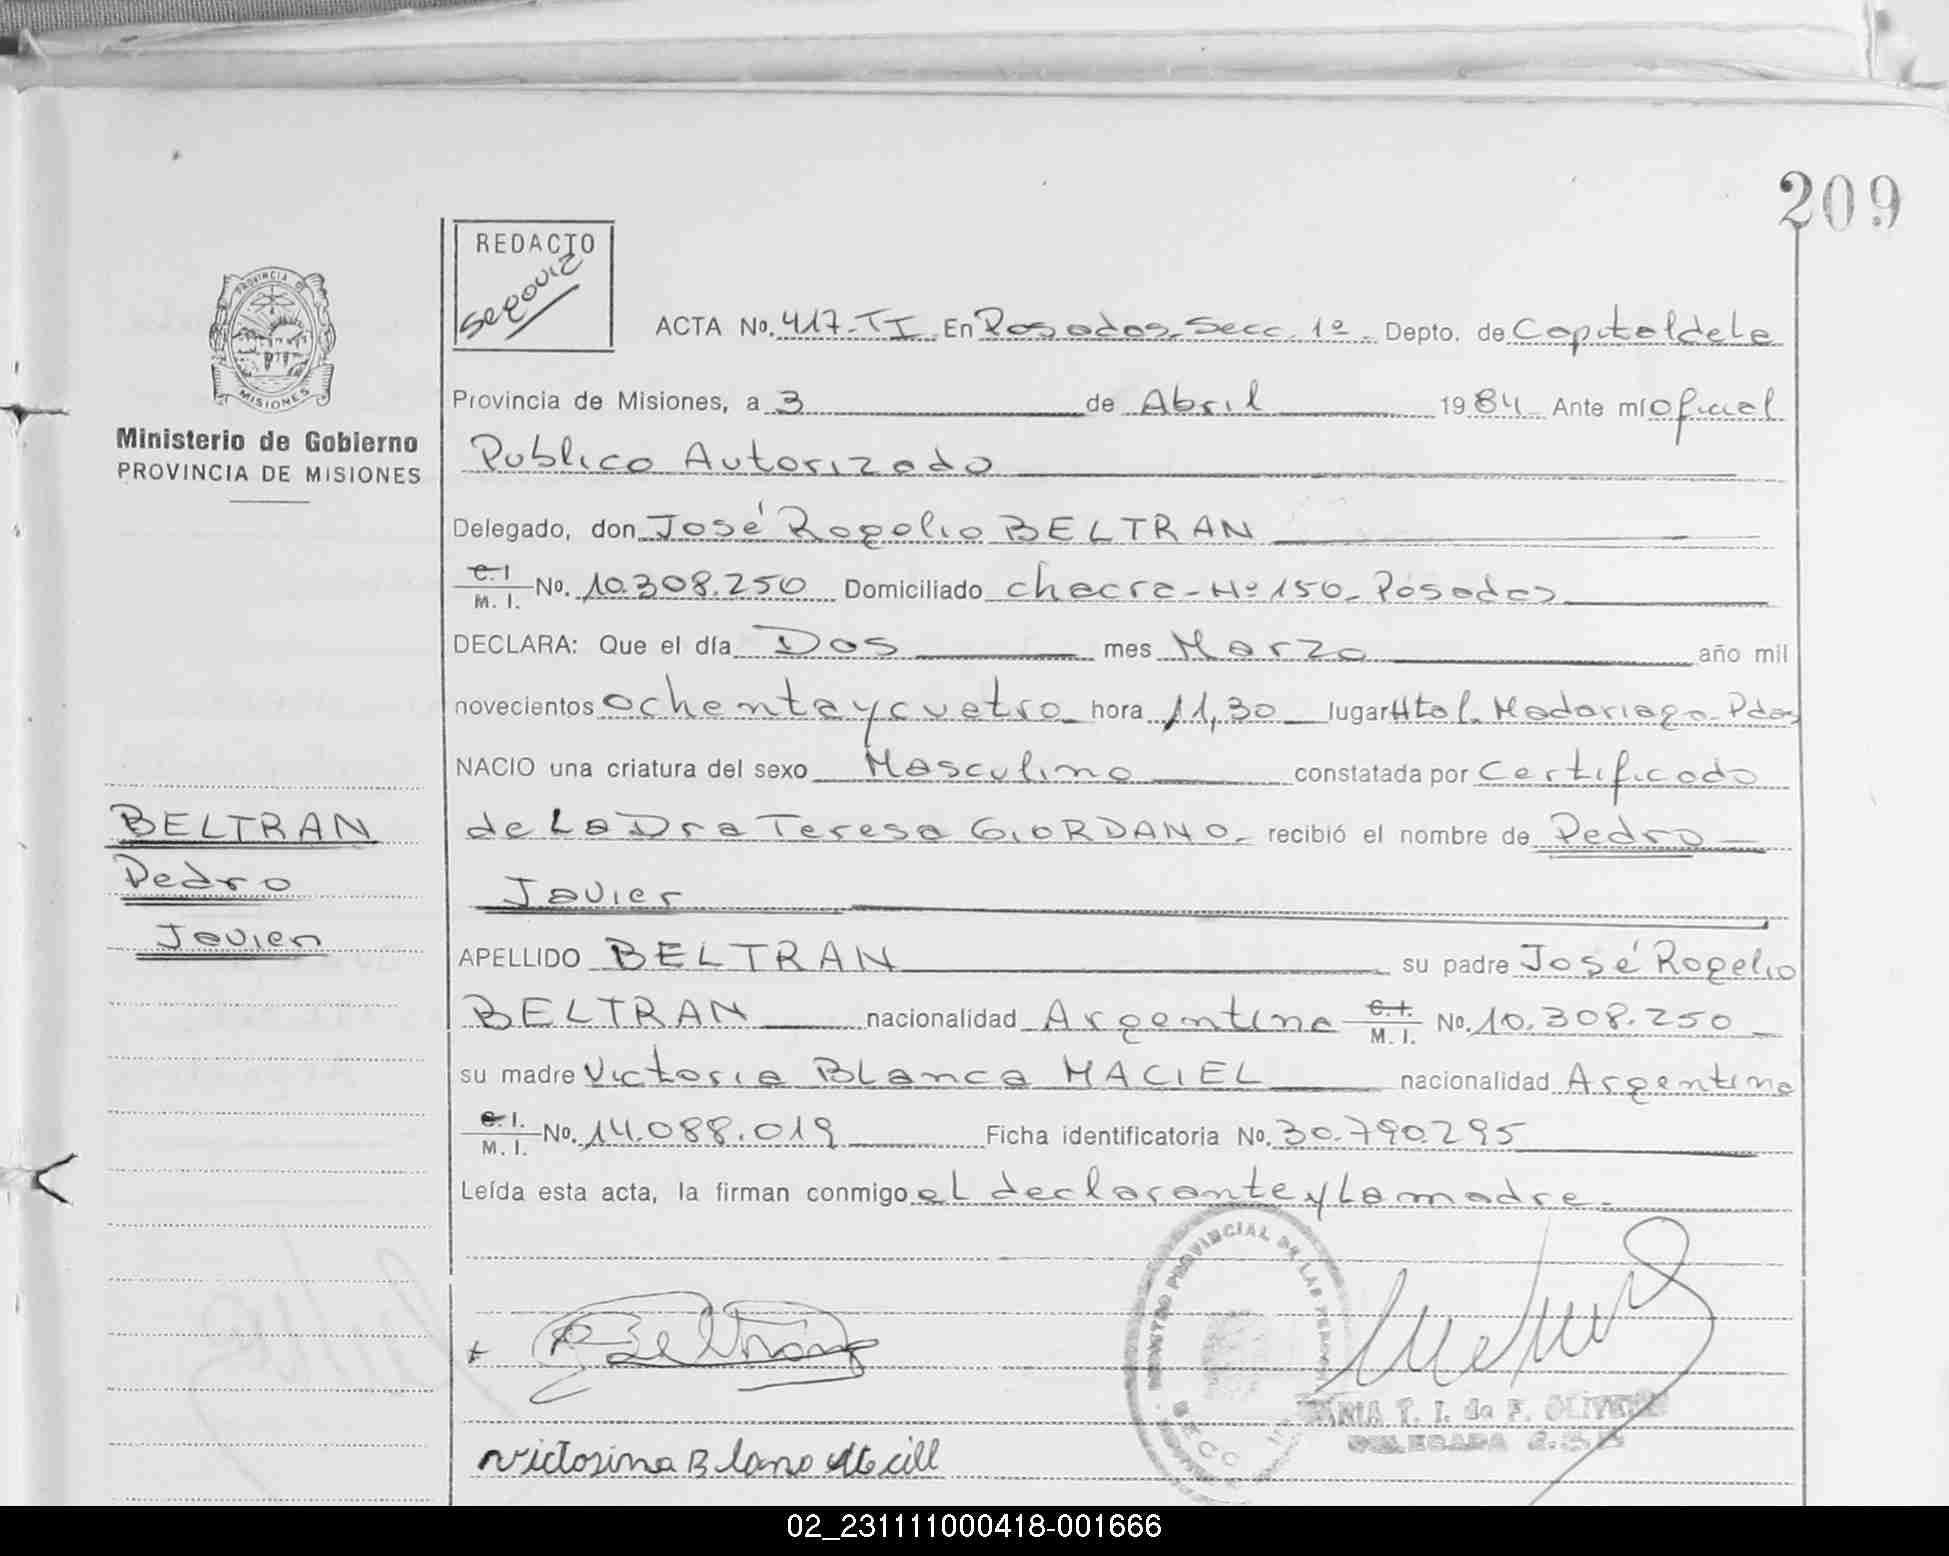 209
REDACTO
PROVINCIA
MISIONES
Ministerio de Gobierno
PROVINCIA DE MISIONES
ACTA No. 417-TI En Posadas-Secc. 1º- Depto. de Capital de la
Provincia de Misiones, a 3 de Abril 1984 Ante mí oficial
Publico Autorizado
Delegado, don José Rogelio BELTRAN
C.I. M.I. No. 10.308.250 Domiciliado chacra-Nº150-Posadas
DECLARA: Que el día Dos mes Marzo año mil
novecientos ochenta y cuatro hora 11,30 lugar Htal. Madariaga-Pdas
NACIO una criatura del sexo Masculino constatada por Certificado
de La Dra Teresa GIORDANO- recibió el nombre de Pedro
Javier
BELTRAN
Pedro
Javier
APELLIDO BELTRAN su padre José Rogelio
BELTRAN nacionalidad Argentina C.I. M.I. No. 10.308.250
su madre Victoria Blanca MACIEL nacionalidad Argentina
C.I. M.I. No. 14.088.019 Ficha identificatoria No. 30.790.295
Leída esta acta, la firman conmigo el declarante y La madre.
REGISTRO PROVINCIAL DE LAS PERSONAS
Beltrán
T. I. de F. OLIVERA
DELEGADA
Victorina Blanc
02_231111000418-001666